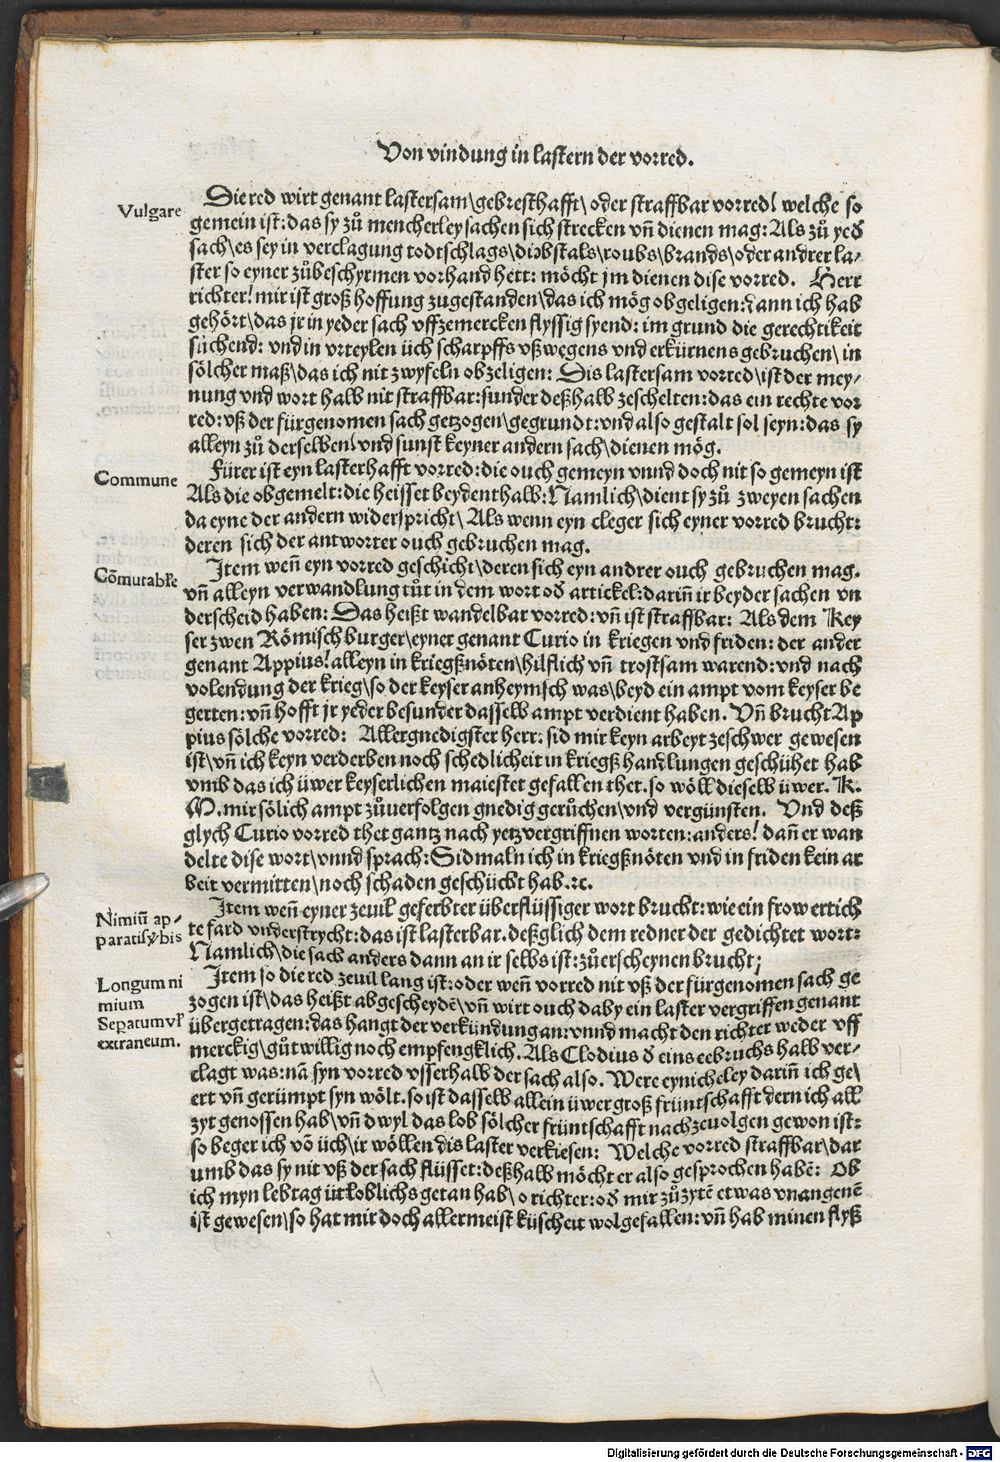 Von vindung in lastern der vorred.
Vulgare
Die red wirt genant lastersam\gebresthafft\ oder straffbar vorred! welche so
gemein ist: das sy zů mencherley sachen sich strecken vn̄ dienen mag: Als zů yed
sach\es sey in verclagung todtschlags\diebstals\roubs\brands\oder andrer la⸗
ster so eyner zůbeschyrmen vorhand hett: möcht jm dienen dise vorred. Herr
richter! mir ist groß hoffung zugestanden\das ich mög obgeligen: dann ich hab
gehört\das jr in yeder sach vffzemercken flyssig syend: im grund die gerechtikeit
süchend: vnd in vrteylen üch scharpffs vßwegens vnd erkürnens gebruchen\ in
sölcher maß\das ich nit zwyfeln obzeligen: Dis lastersam vorred\ist der mey⸗
nung vnd wort halb nit straffbar: sunder deßhalb zeschelten: das ein rechte vor
red: vß der fürgenomen sach getzogen\gegrundt: vnd also gestalt sol seyn: das sy
alleyn zů derselben! vnd sunst keyner andern sach\dienen mög.
Commune
Fürer ist eyn lasterhafft vorred: die ouch gemeyn vnnd doch nit so gemeyn ist
Als die obgemelt: die heisset beydenthalb: Namlich\dient sy zů zweyen sachen
da eyne der andern widerspricht\ Als wenn eyn cleger sich eyner vorred brucht:
deren sich der antworter ouch gebruchen mag.
Cōmutabłe
Item wen̄ eyn vorred geschicht\deren sich eyn andrer ouch gebruchen mag.
vn̄ alleyn verwandlung tůt in dem wort od artickel: darin̄ ir beyder sachen vn
derscheid haben: Das heißt wandelbar vorred: vn̄ ist straffbar: Als dem Key
ser zwen Römisch burger\eyner genant Curio in kriegen vnd friden: der ander
genant Appius! alleyn in kriegßnöten\hilflich vn̄ trostsam warend: vnd nach
volendung der krieg\so der keyser anheymsch was\beyd ein ampt vom keyser be
gerten: vn̄ hofft jr yeder besunder dasselb ampt verdient haben. Vn̄ brucht Ap
pius sölche vorred: Allergnedigster herr: sid mir keyn arbeyt zeschwer gewesen
ist\vn̄ ich keyn verderben noch schedlicheit in kriegß handlungen geschühet hab
vmb das ich üwer keyserlichen maiestet gefallen thet. so wöll dieselb üwer. K.
M. mir sölich ampt zůuerfolgen gnedig gerůchen\vnd vergünsten. Vnd deß
glych Curio vorred thet gantz nach yetz vergriffnen worten: anders! dan̄ er wan
delte dise wort\vnnd sprach: Sidmaln ich in kriegßnöten vnd in friden kein ar
beit vermitten\noch schaden geschücht hab.ꝛc.
Nimiū ap⸗
paratis v̄bis
Item wen̄ eyner zeuil geferbter überflüssiger wort brucht: wie ein frow ertich
te fard vnderstrycht: das ist lasterbar. deßglich dem redner der gedichtet wort:
Namlich\die sach anders dann an ir selbs ist: zůerscheynen brucht;
Longum ni
mium
Sepatum vł
extraneum.
Item so die red zeuil lang ist: oder wen̄ vorred nit vß der fürgenomen sach ge
zogen ist\das heißt abgescheydē\vn̄ wirt ouch daby ein laster vergriffen genant
übergetragen: das hangt der verkündung an: vnnd macht den richter weder vff
merckig\gůtwillig noch empfengklich. Als Clodius d eins eebruchs halb ver⸗
clagt was: nā syn vorred vsserhalb der sach also. Were eynicheley darin̄ ich ge\
ert vn̄ gerümpt syn wölt. so ist dasselb allein üwer groß früntschafft dern ich all
zyt genossen hab\vn̄ dwyl das lob sölcher früntschafft nachzeuolgen gewon ist:
so beger ich vō üch\ir wöllen dis laster verkiesen: Welche vorred straffbar\dar
umb das sy nit vß der sach flüsset: deßhalb möcht er also gesprochen habē: Ob
ich myn lebtag ützloblichs getan hab\ o richter: od mir zů zytē etwas vnangenē
ist gewesen\so hat mir doch allermeist küscheit wolgefallen: vn̄ hab minen flyß
Digitalisierung gefördert durch die Deutsche Forschungsgemeinschaft - DFG